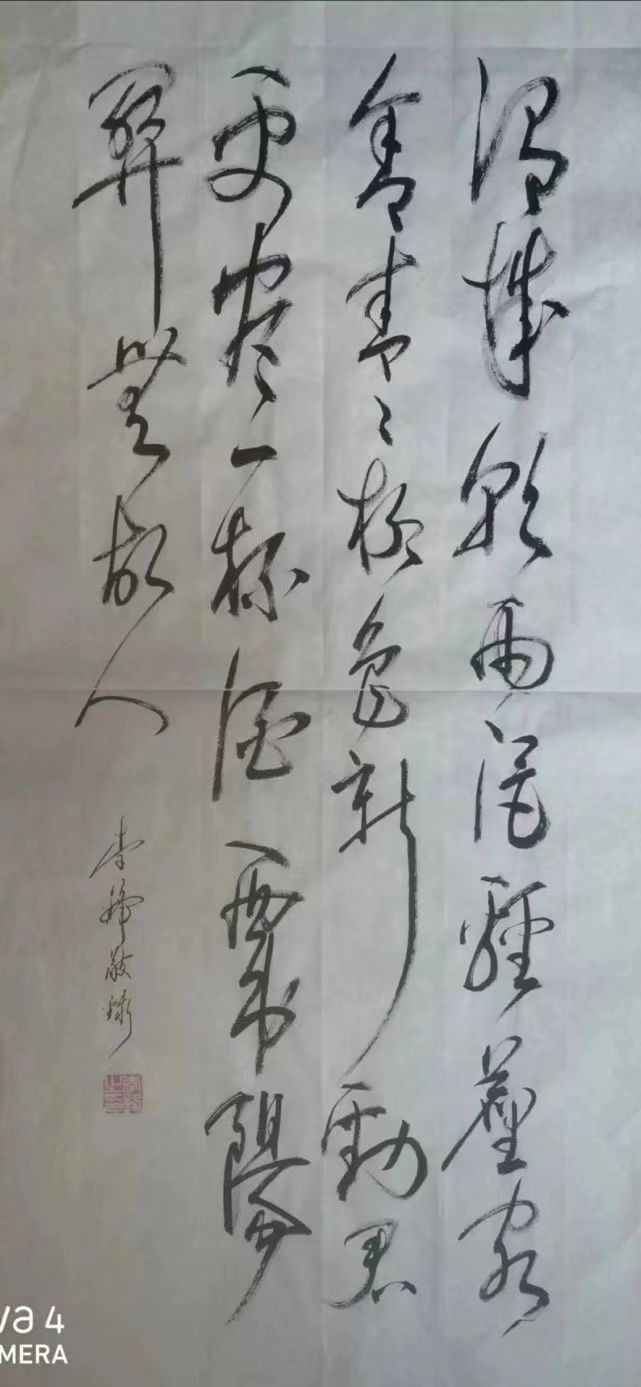 渭城朝雨浥轻尘客
舍青青〻柳色新劝君
更尽一杯酒西出阳
关无故人
李 敬录
va 4
MERA